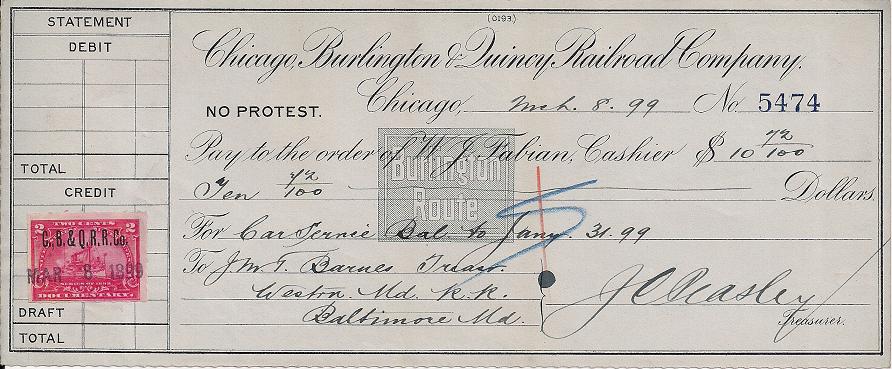 STATEMENT
DEBIT
TOTAL
CREDIT
DRAFT
TOTAL
(0193)
Chicago, Burlington & Quincy Railroad Company.
Chicago, Mch. 8. 99 No. 5474
NO PROTEST.
Pay to the order of W. J. Fabian, Cashier $ 10 72/100
Ten 72/100 Dollars.
Burlington
Route
For Car Servic Bal to Jany. 31.99
To J. M. T. Barnes Treasr.
Westrn. Md. R. R.
Baltimore Md.
J C Peasley
Treasurer.
TWO CENTS
2 2
C., B. & Q. R. R. Co.
MAR 8 1899
SERIES OF 1898
DOCUMENTARY.